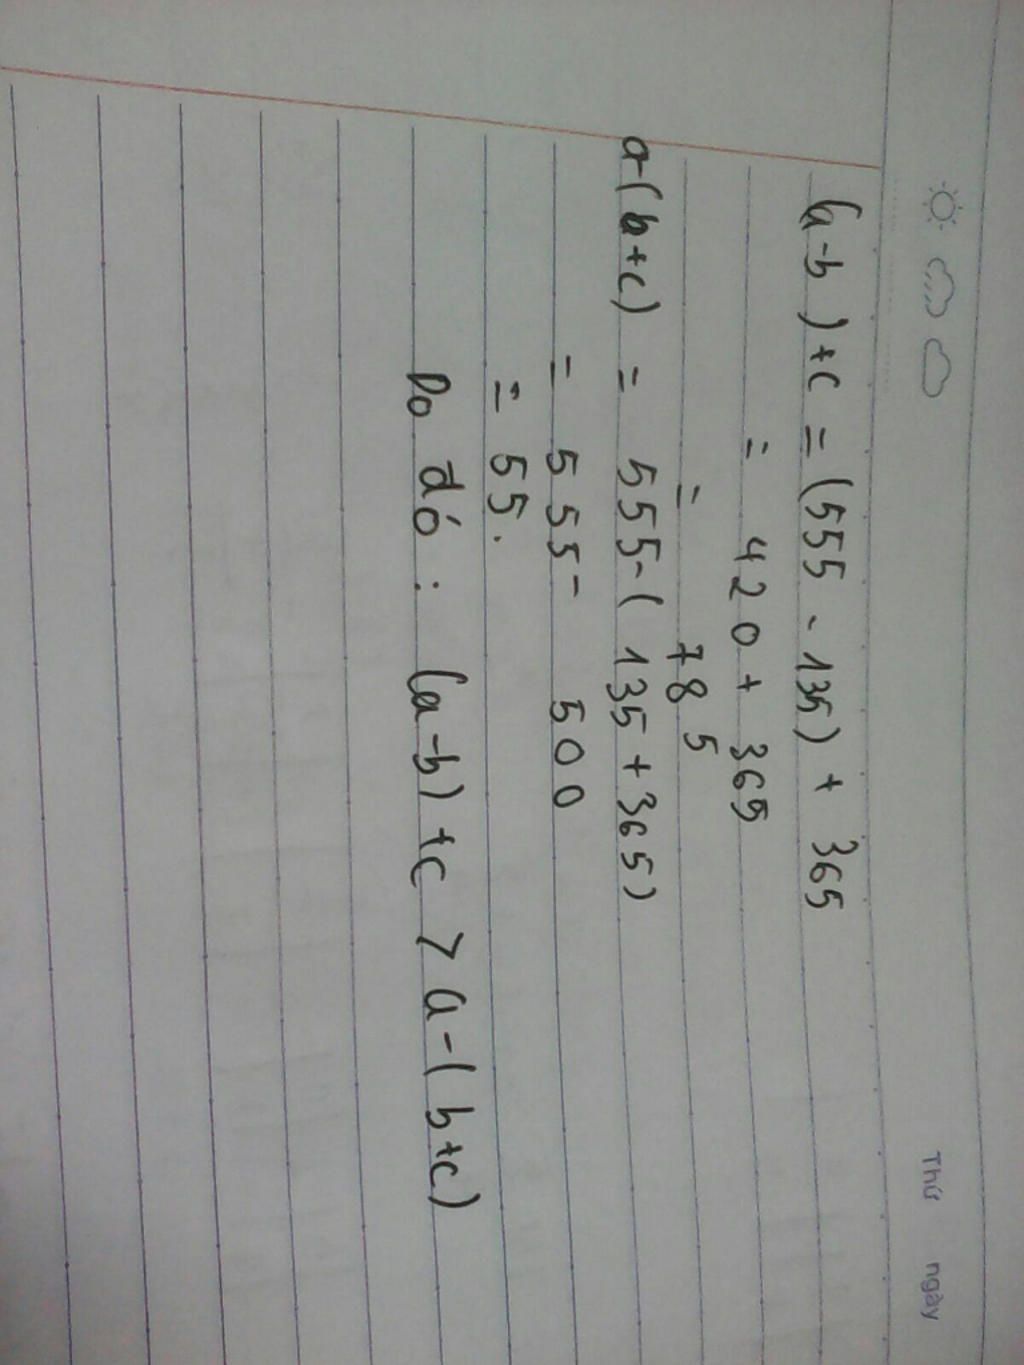 Thứ ngày
(a-b)+c = (555 - 135) + 365
= 420 + 365
= 785
a-(b+c) = 555-(135+365)
= 555- 500
= 55.
Do đó: (a-b)+c > a-(b+c)